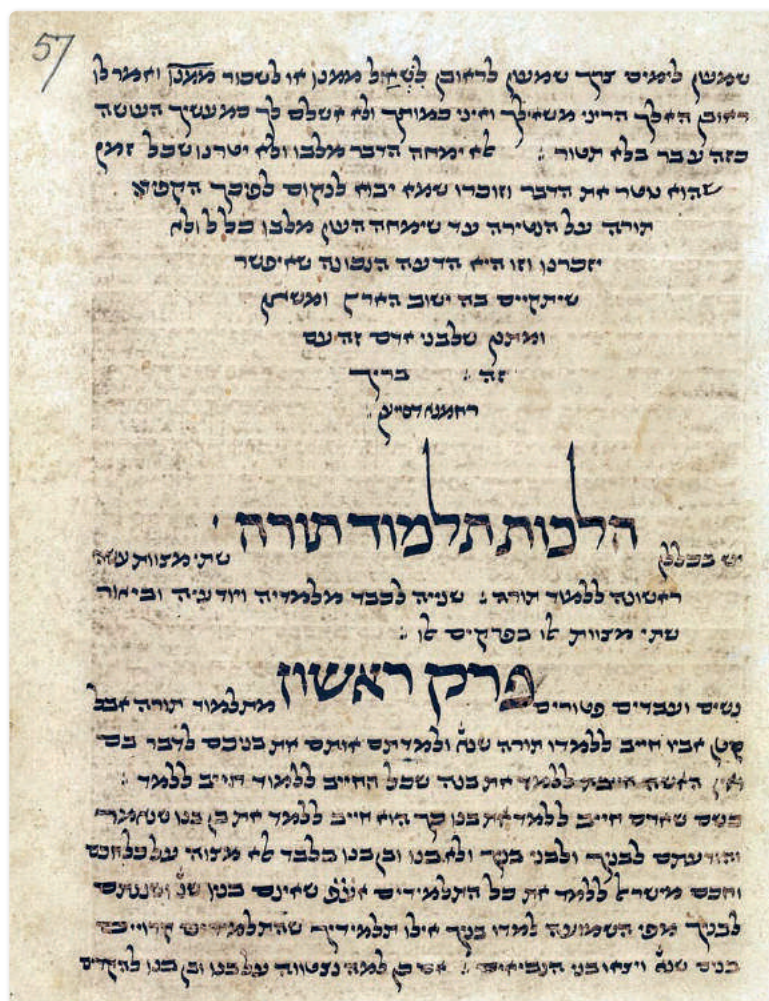 57
שמעון לימים צריך שמעון לראובן לשאול ממנו או לשכור ממנו ואמר לו
ראובן האלך הריני משאילך ואיני כמותך ולא אשלם לך כמעשיך העושה
כזה עבר בלא תטור : לא ימחה הדבר מלבו ולא יטרנו שכל זמן
שהוא נוטר את הדבר וזוכרו שמא יבוא לנקום לפיכך הקפידה
תורה על הנטירה עד שימחה העון מלבו כלל ולא
יזכרנו וזו היא הדעה הנכונה שאיפשר
שיתקיים בה ישוב הארץ ומשאם
ומתנם שלבני אדם זה עם
זה : בריך
רחמנא דסייען :
הלכות תלמוד תורה
יש בכללן שתי מצוות עשה
ראשונה ללמוד תורה : שניה לכבד מלמדיה ויודעיה וביאור
שתי מצוות אלו בפרקים אלו :
פרק ראשון
נשים ועבדים פטורים מתלמוד תורה אבל
קטן אביו חייב ללמדו תורה שנא ולמדתם אותם את בניכם לדבר בם
ואין האשה חייבת ללמד את בנה שכל החייב ללמוד חייב ללמד :
כשם שאדם חייב ללמד את בנו כך הוא חייב ללמד את בן בנו שנאמר
והודעתם לבניך ולבני בניך ולא בנו ובן בנו בלבד אלא מצוה על כל חכם
וחכם מישראל ללמד את כל התלמידים אעפ שאינם בניו שנ ושננתם
לבניך מפי השמועה למדו בניך אילו תלמידיך שהתלמידים קרויים
בנים שנא ויצאו בני הנביאים : אם כן למה נצטווה על בנו ובן בנו להקדים